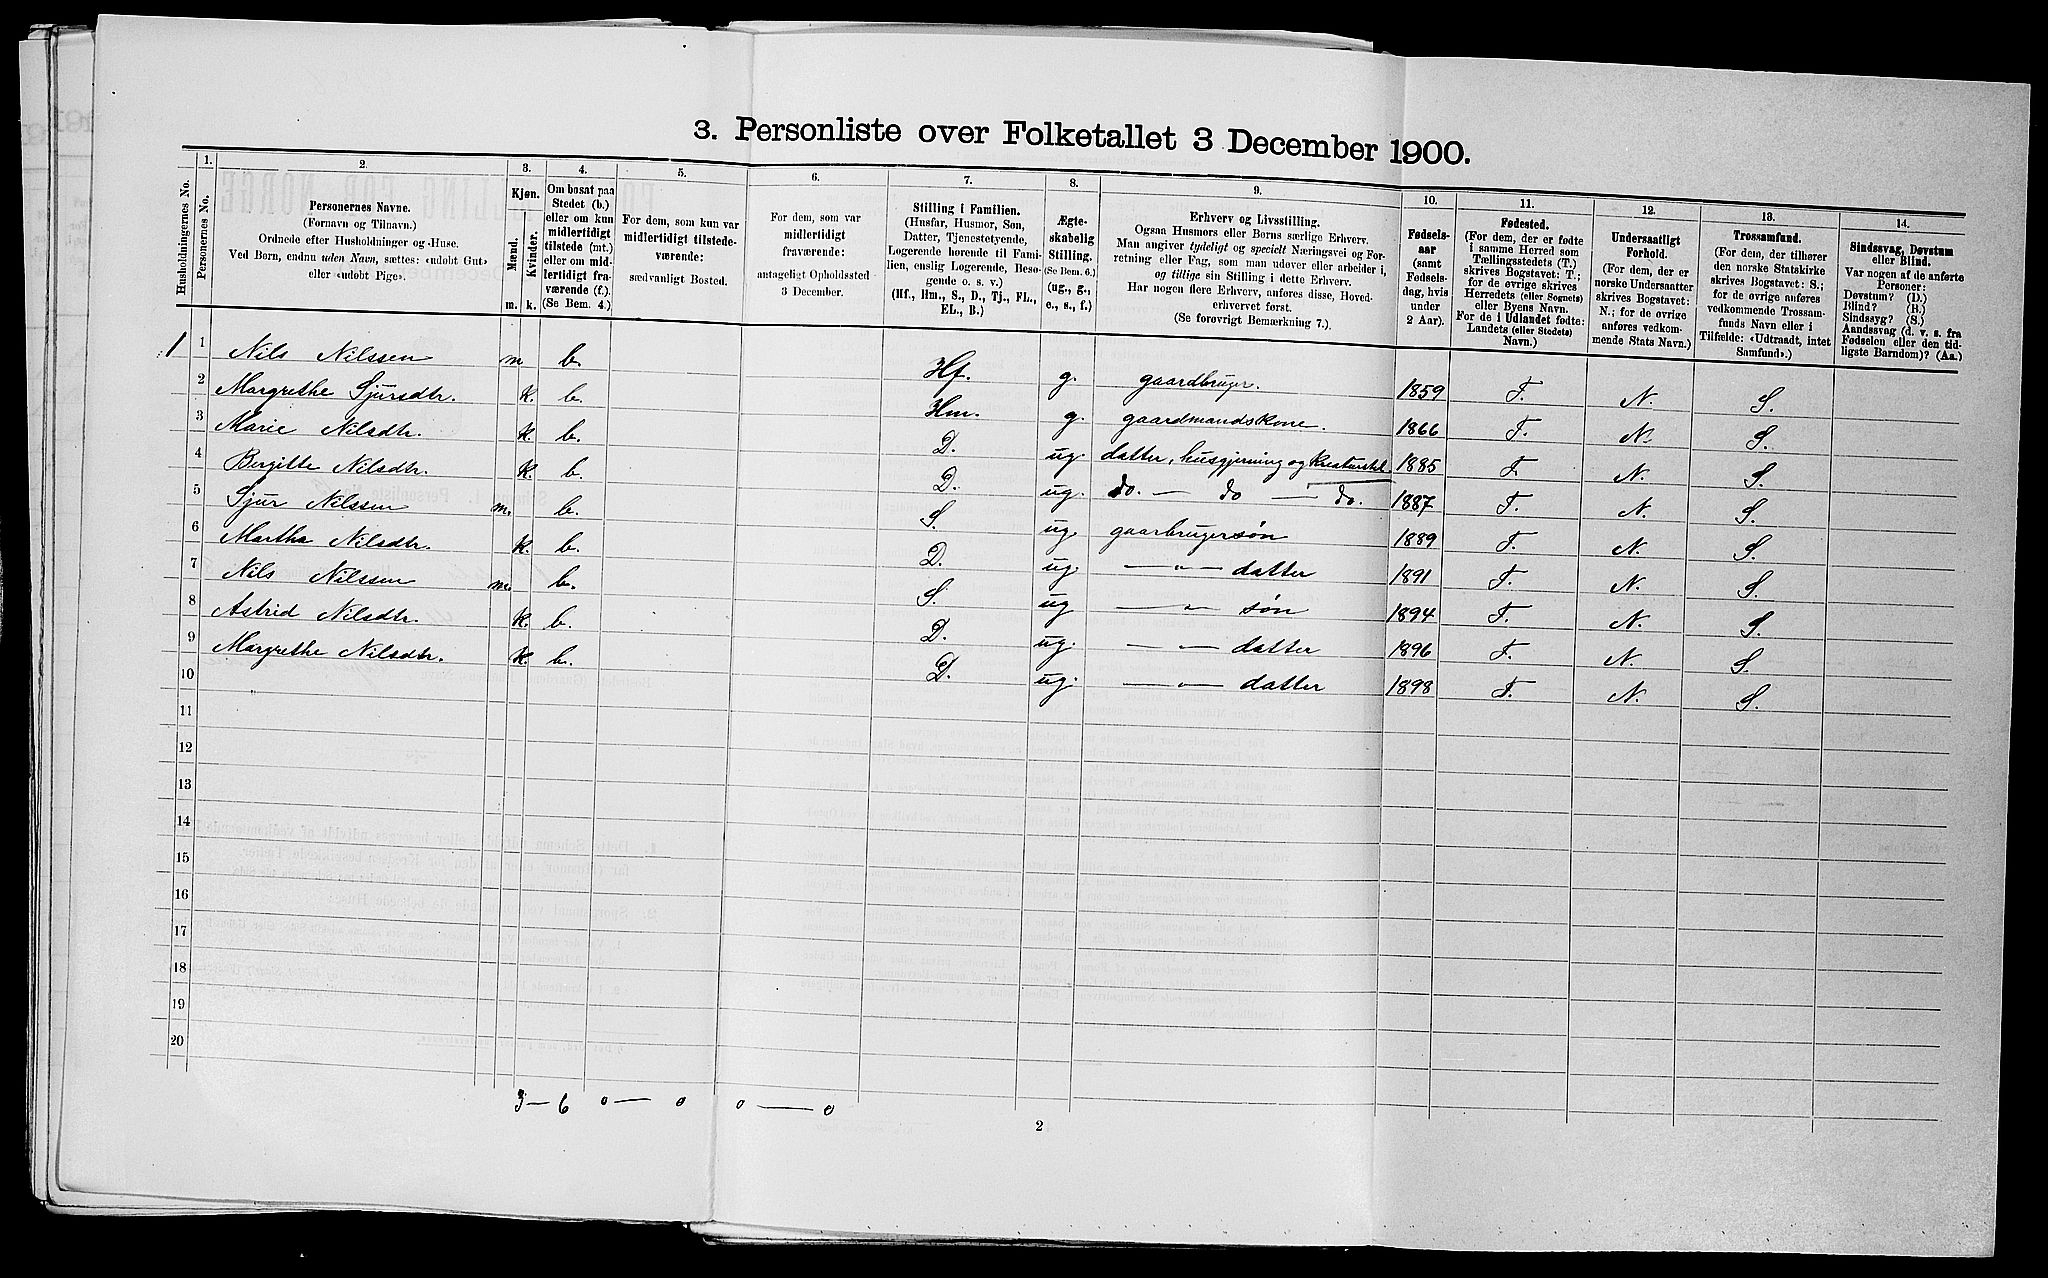 3. Personliste over Folketallet 3 December 1900.
Husholdningernes No.
1.
Personernes No.
2.
Personernes Navne.
(Fornavn og Tilnavn.)
Ordnede efter Husholdninger og Huse.
Ved Børn, endnu uden Navn, sættes: «udøbt Gut»
eller «udøbt Pige».
3.
Kjøn.
Mænd.
Kvinder.
m. k.
4.
Om bosat paa
Stedet (b.)
eller om kun
midlertidigt
tilstede (mt.)
eller om mid-
lertidigt fra-
værende (f.).
(Se Bem. 4.)
5.
For dem, som kun var
midlertidigt tilstede-
værende:
sædvanligt Bosted.
6.
For dem, som var
midlertidigt
fraværende:
antageligt Opholdssted
3 December.
7.
Stilling i Familien.
(Husfar, Husmor, Søn,
Datter, Tjenestetyende,
Logerende hørende til Fami-
lien, enslig Logerende, Besø-
gende o. s. v.)
(Hf., Hm., S., D., Tj., FL.,
EL., B.)
8.
Ægte-
skabelig
Stilling.
(Se Bem. 6.)
(ug., g.,
e., s., f.)
9.
Erhverv og Livsstilling.
Ogsaa Husmors eller Børns særlige Erhverv.
Man angiver tydeligt og specielt Næringsvei og For-
retning eller Fag, som man udøver eller arbeider i,
og tillige sin Stilling i dette Erhverv.
Har nogen flere Erhverv, anføres disse, Hoved-
erhvervet først.
(Se forøvrigt Bemærkning 7.)
10.
Fødsels-
aar
(samt
Fødsels-
dag, hvis
under
2 Aar).
11.
Fødested.
(For dem, der er fødte
i samme Herred som
Tællingsstedets (T.)
skrives Bogstavet: T.;
for de øvrige skrives
Herredets (eller Sognets)
eller Byens Navn.
For de i Udlandet fødte:
Landets (eller Stedets)
Navn.)
12.
Undersaatligt
Forhold.
(For dem, der er
norske Undersaatter
skrives Bogstavet:
N.; for de øvrige
anføres vedkom-
mende Stats Navn.)
13.
Trossamfund.
(For dem, der tilhører
den norske Statskirke
skrives Bogstavet: S.;
for de øvrige anføres
vedkommende Trossam-
funds Navn eller i
Tilfælde: «Udtraadt, intet
Samfund».)
14.
Sindssvag, Døvstum
eller Blind.
Var nogen af de anførte
Personer:
Døvstum? (D.)
Blind? (B.)
Sindssyg? (S.)
Aandssvag (d. v. s. fra
Fødselen eller den tid-
ligste Barndom)? (Aa.)
1 1 Nils Nilssen m. b. Hf. g. gaardbruger. 1859 T. N. S.
2 Margrethe Sjursdtr. k. b. Hm. g. gaardmandskone. 1866 T. N. S.
3 Marie Nilsdtr. k. b. D. ug. datter, husgjerning og kreaturstel 1885 T. N. S.
4 Birgitte Nilsdtr. k. b. D. ug. do. — do — do. 1887 T. N. S.
5 Sjur Nilssen m. b. S. ug. gaarbrugersøn 1889 T. N. S.
6 Martha Nilsdtr. k. b. D. ug. — " — datter 1891 T. N. S.
7 Nils Nilssen m. b. S. ug — " — søn 1894 T. N. S.
8 Astrid Nilsdtr. k. b. D. ug. — " — datter 1896 T. N. S.
9 Margrethe Nilsdtr. k. b. D. ug. — " — datter 1898 T. N. S.
10
11
12
13
14
15
16
17
18
19
20
3 — 6 0 — 0 0 — 0
2